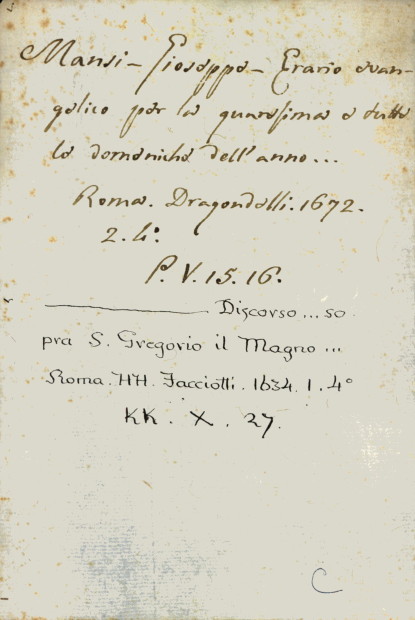 Mansi - Gioseppe - Erario evan-
gelico per la quaresima e tutte
le domeniche dell'anno...
Roma. Dragondelli. 1672.
2. 4°.
P. V. 15. 16.
Discorso ... so
pra S. Gregorio il Magno ...
Roma. HH. Facciotti. 1634. 1. 4°
KK. X. 27.
C